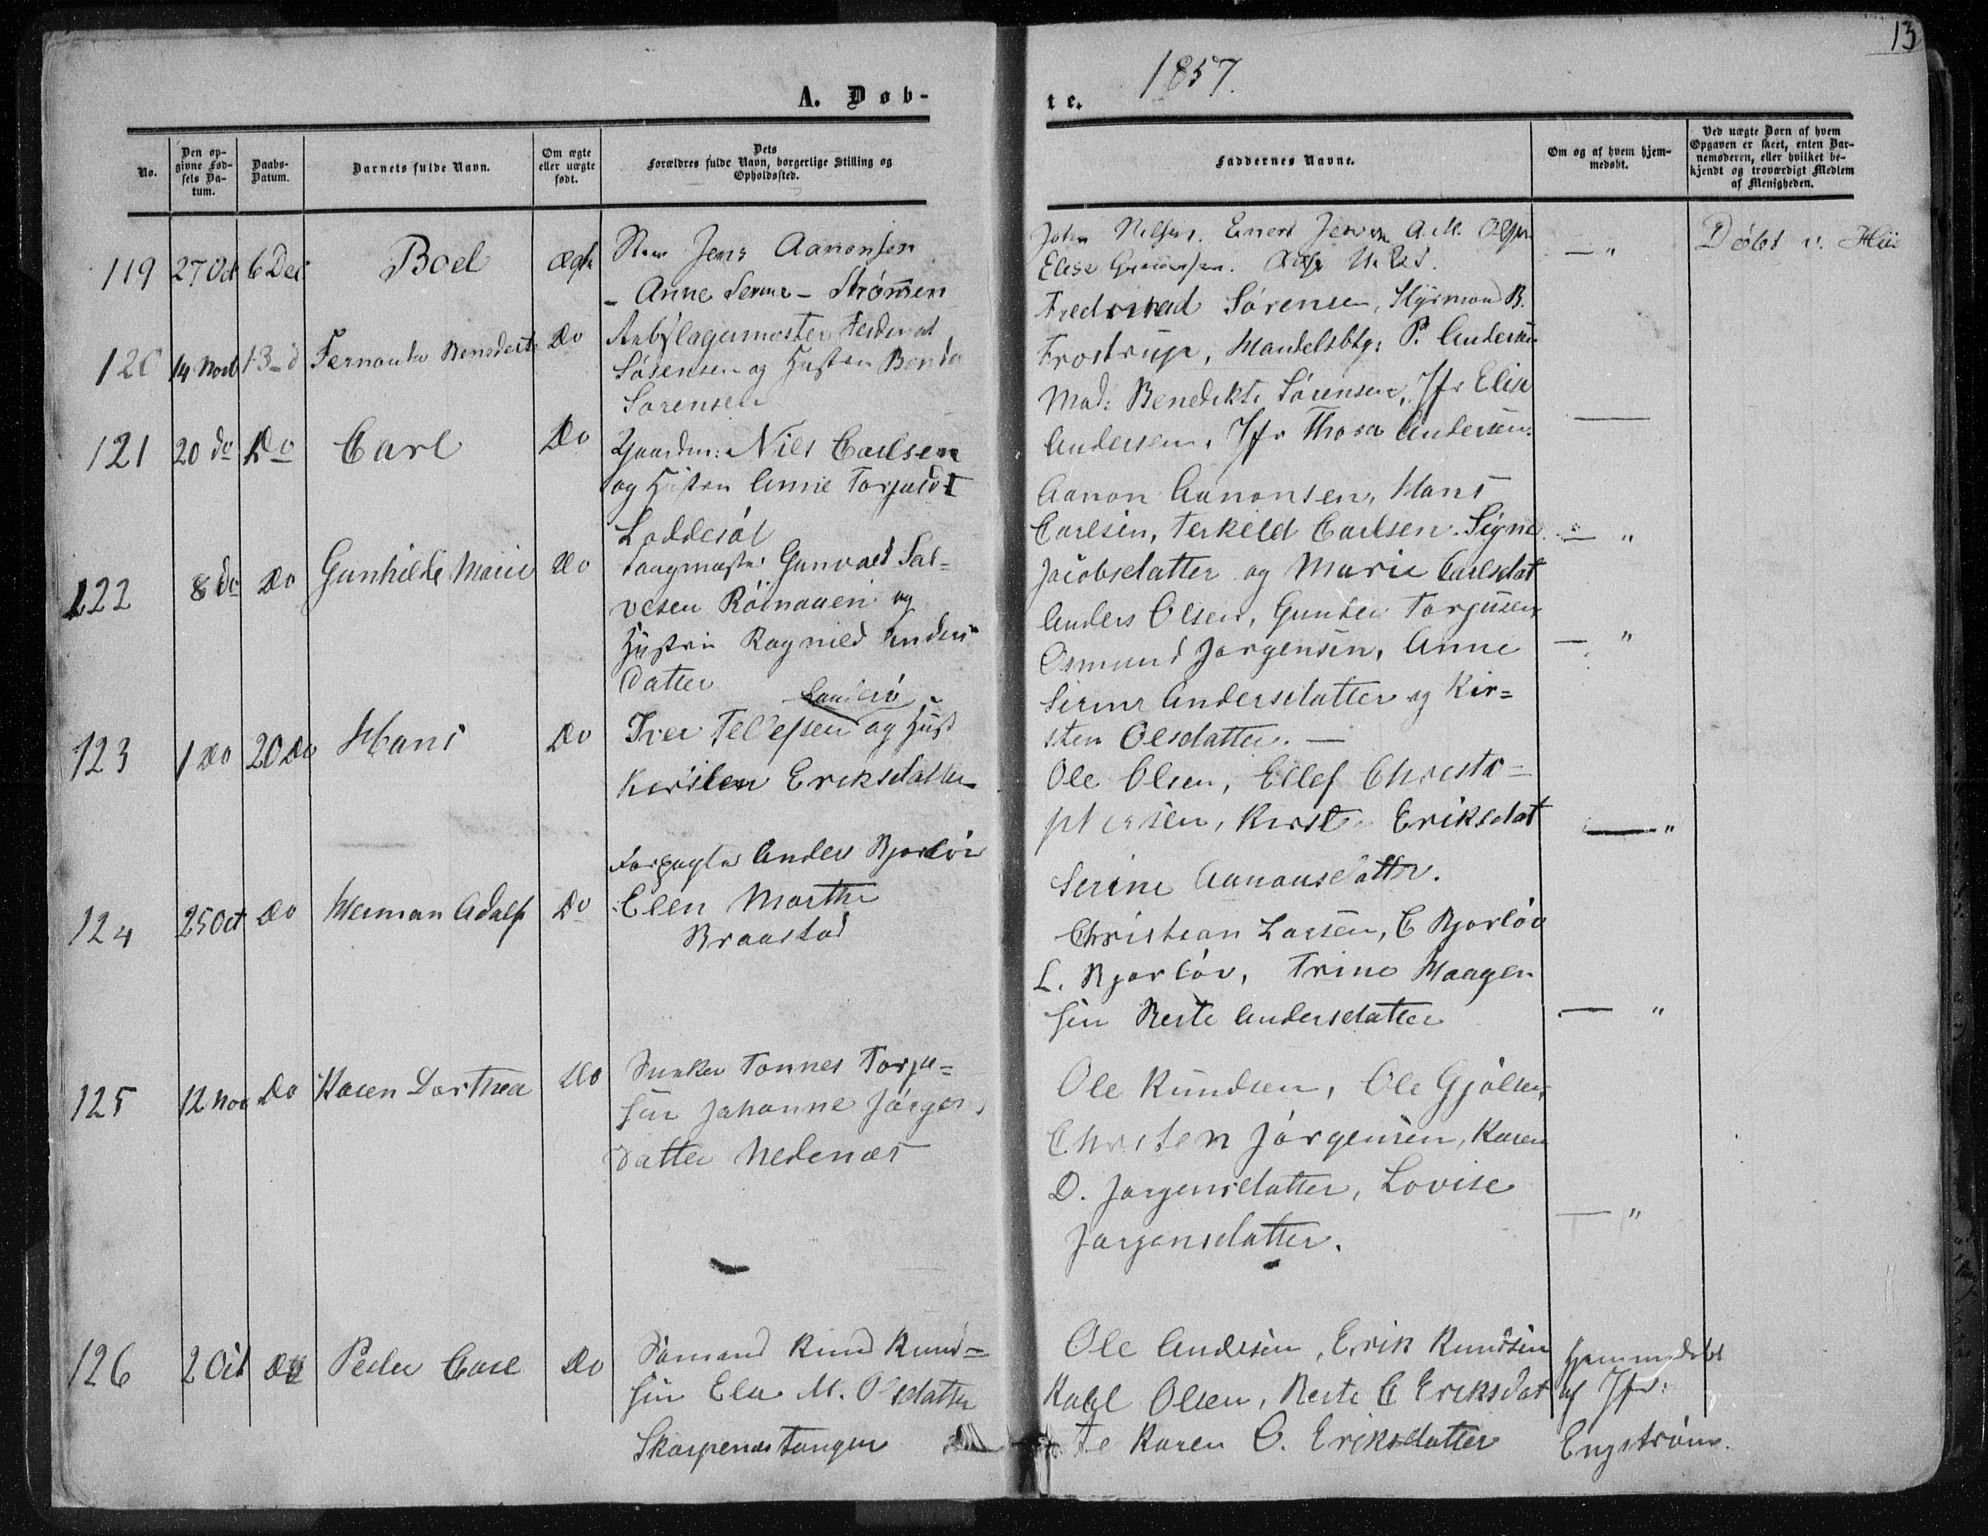 13
1857.
A. Døb-
te.
No.
Den op-
givne Fød-
sels Da-
tum.
Daabs-
Datum.
Barnets fulde Navn.
Om ægte
eller uægte
født.
Dets
Forældres fulde Navn, borgerlige Stilling og
Opholdssted.
Faddernes Navne.
Om og af hvem hjem-
medøbt.
Ved uægte Børn af hvem
Opgaven er skeet, enten Bar-
nemoderen, eller hvilket be-
kjendt og troværdigt Medlem
af Menigheden.
119 27 Oct 6 Dec Boel ægte
Jens Aanonsen
- Anne - Strømmen
John Elise
— " Døbt
120 14 Novb 13 d Fernanda Do
Sørensen og Hustru
Sørensen
Sørensen, Styrmand B.
Frostrup, P. Andersen
Mad: Benedikte Sørensen, Jfr Elise
Andersen, Jfr Thora Andersen.
121 20 do Do Carl Do
Gaardm: Niels Carlsen
og Hustru Anne
Loddesøl
Aanon Aanonsen, Hans
Carlsen, Terkeld Carlsen. Signe
Jacobsdatter og Marie Carlsdat
— "
122 8 do Do Gunhilde Marie Do
Gunvald Sal=
vesen og
Hustru Ragnild Anders
datter
Anders Olsen, Gunder Torjusen
Osmund Jørgensen, Anne
Serine Andersdatter og Kir=
sten Olsdatter. —
— "
123 1 Do 20 Do Hans Do
Iver Tellefsen og Hust
Kirsten Eriksdatter
Ole Olsen, Ellef Christo=
phersen, Kirst Eriksdat
Serine Aanonsdatter.
— "
124 25 Oct Do Herman Adolf Do
Forpagter Anders Bjorløv
Elen Marthe
Braastad
Christian Larsen, C Bjorløv
L. Bjorløv, Trine Haagen
sen Berte Andersdatter
— "
125 12 Nov Do Karen Dorthea Do
Tønnes Torju=
sen Johanne Jørgens
datter Nedenæs
Ole Knudsen, Ole Gjølsen,
Christen Jørgensen, Karen
D. Jørgensdatter, Lovise
Jørgensdatter.
— "
126 2 Oct Do Peder Carl Do
Sømand Knud Knud=
sen Ele M. Olsdatter
Skarpenes Tangen
Ole Andersen, Erik Knudsen
Kahl Olsen, Berte C Eriksdat
te Karen O. Eriksdatter
Hjemmedøbt
af Jfr:
Engstrøm.